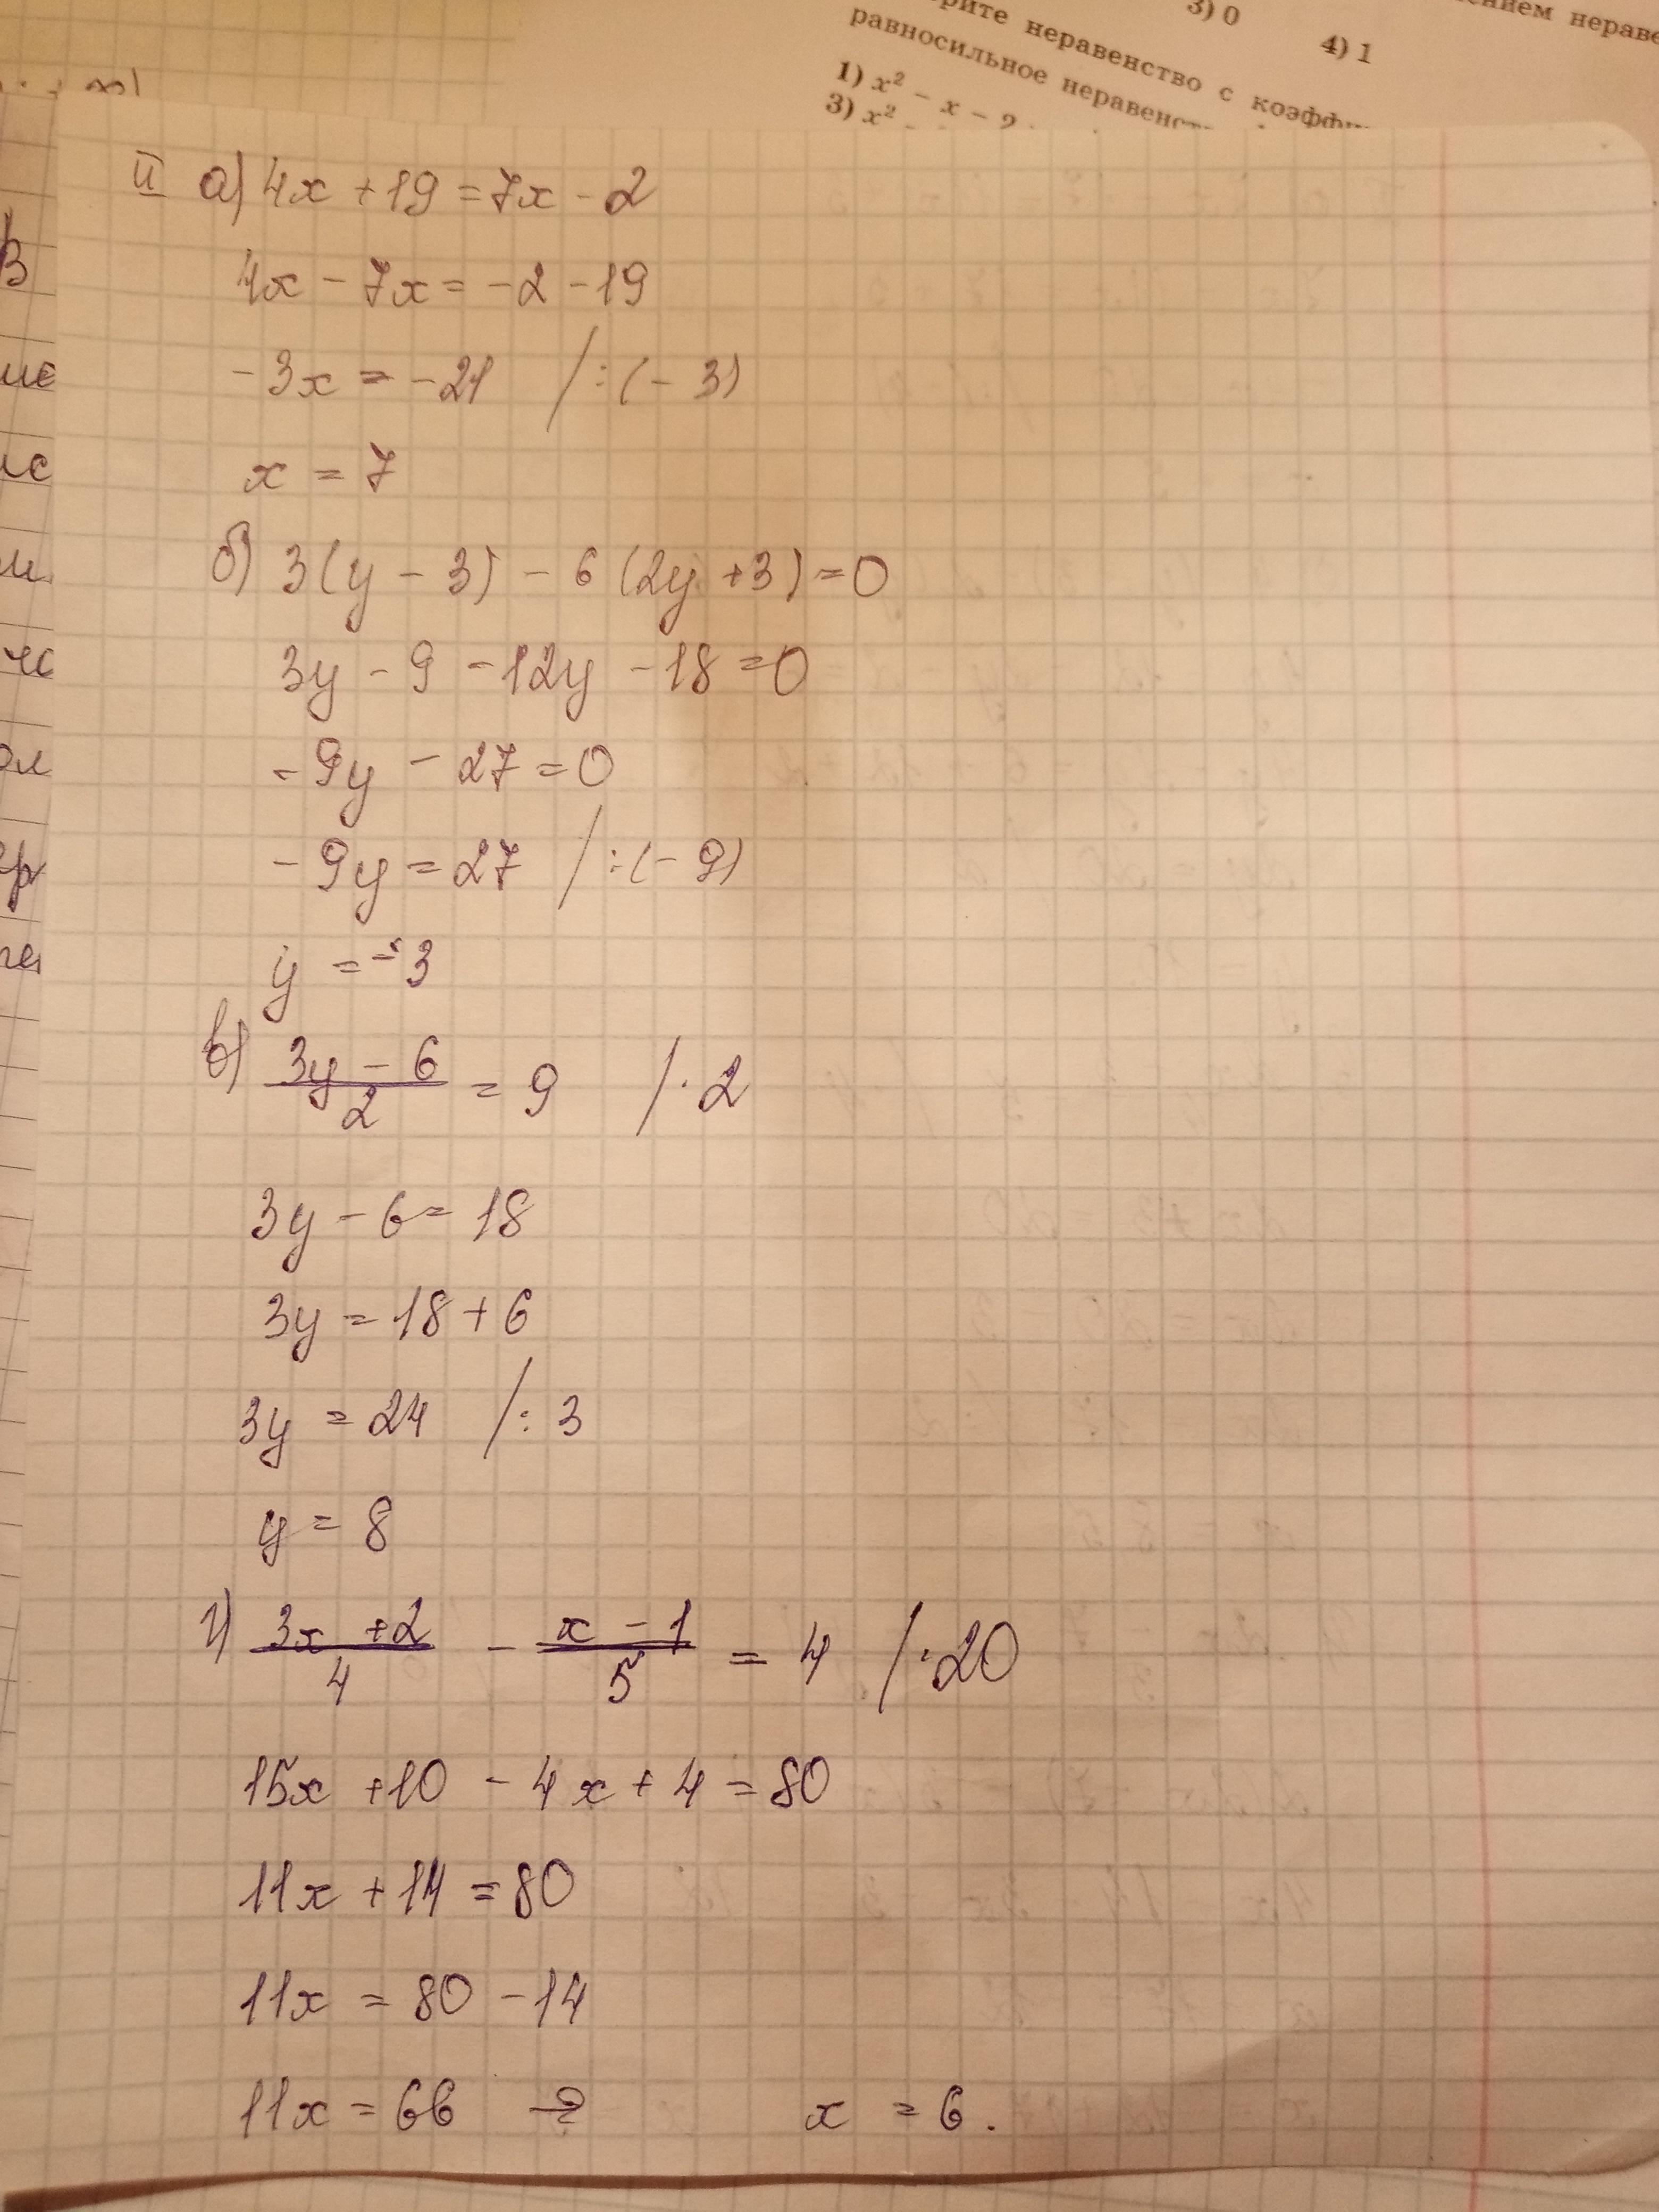 3) 0
4) 1
нием нераве
рите неравенство с коэффи
равносильное неравенст
1) x² - x - 2
3) x² -
II а) 4x + 19 = 7x - 2
4x - 7x = -2 - 19
-3x = -21 / : (-3)
x = 7
б) 3(y - 3) - 6(2y + 3) = 0
3y - 9 - 12y - 18 = 0
-9y - 27 = 0
-9y = 27 / : (-9)
y = -3
в) \frac{3y - 6}{2} = 9 / · 2
3y - 6 = 18
3y = 18 + 6
3y = 24 / : 3
y = 8
г) \frac{3x + 2}{4} - \frac{x - 1}{5} = 4 / · 20
15x + 10 - 4x + 4 = 80
11x + 14 = 80
11x = 80 - 14
11x = 66 x = 6.